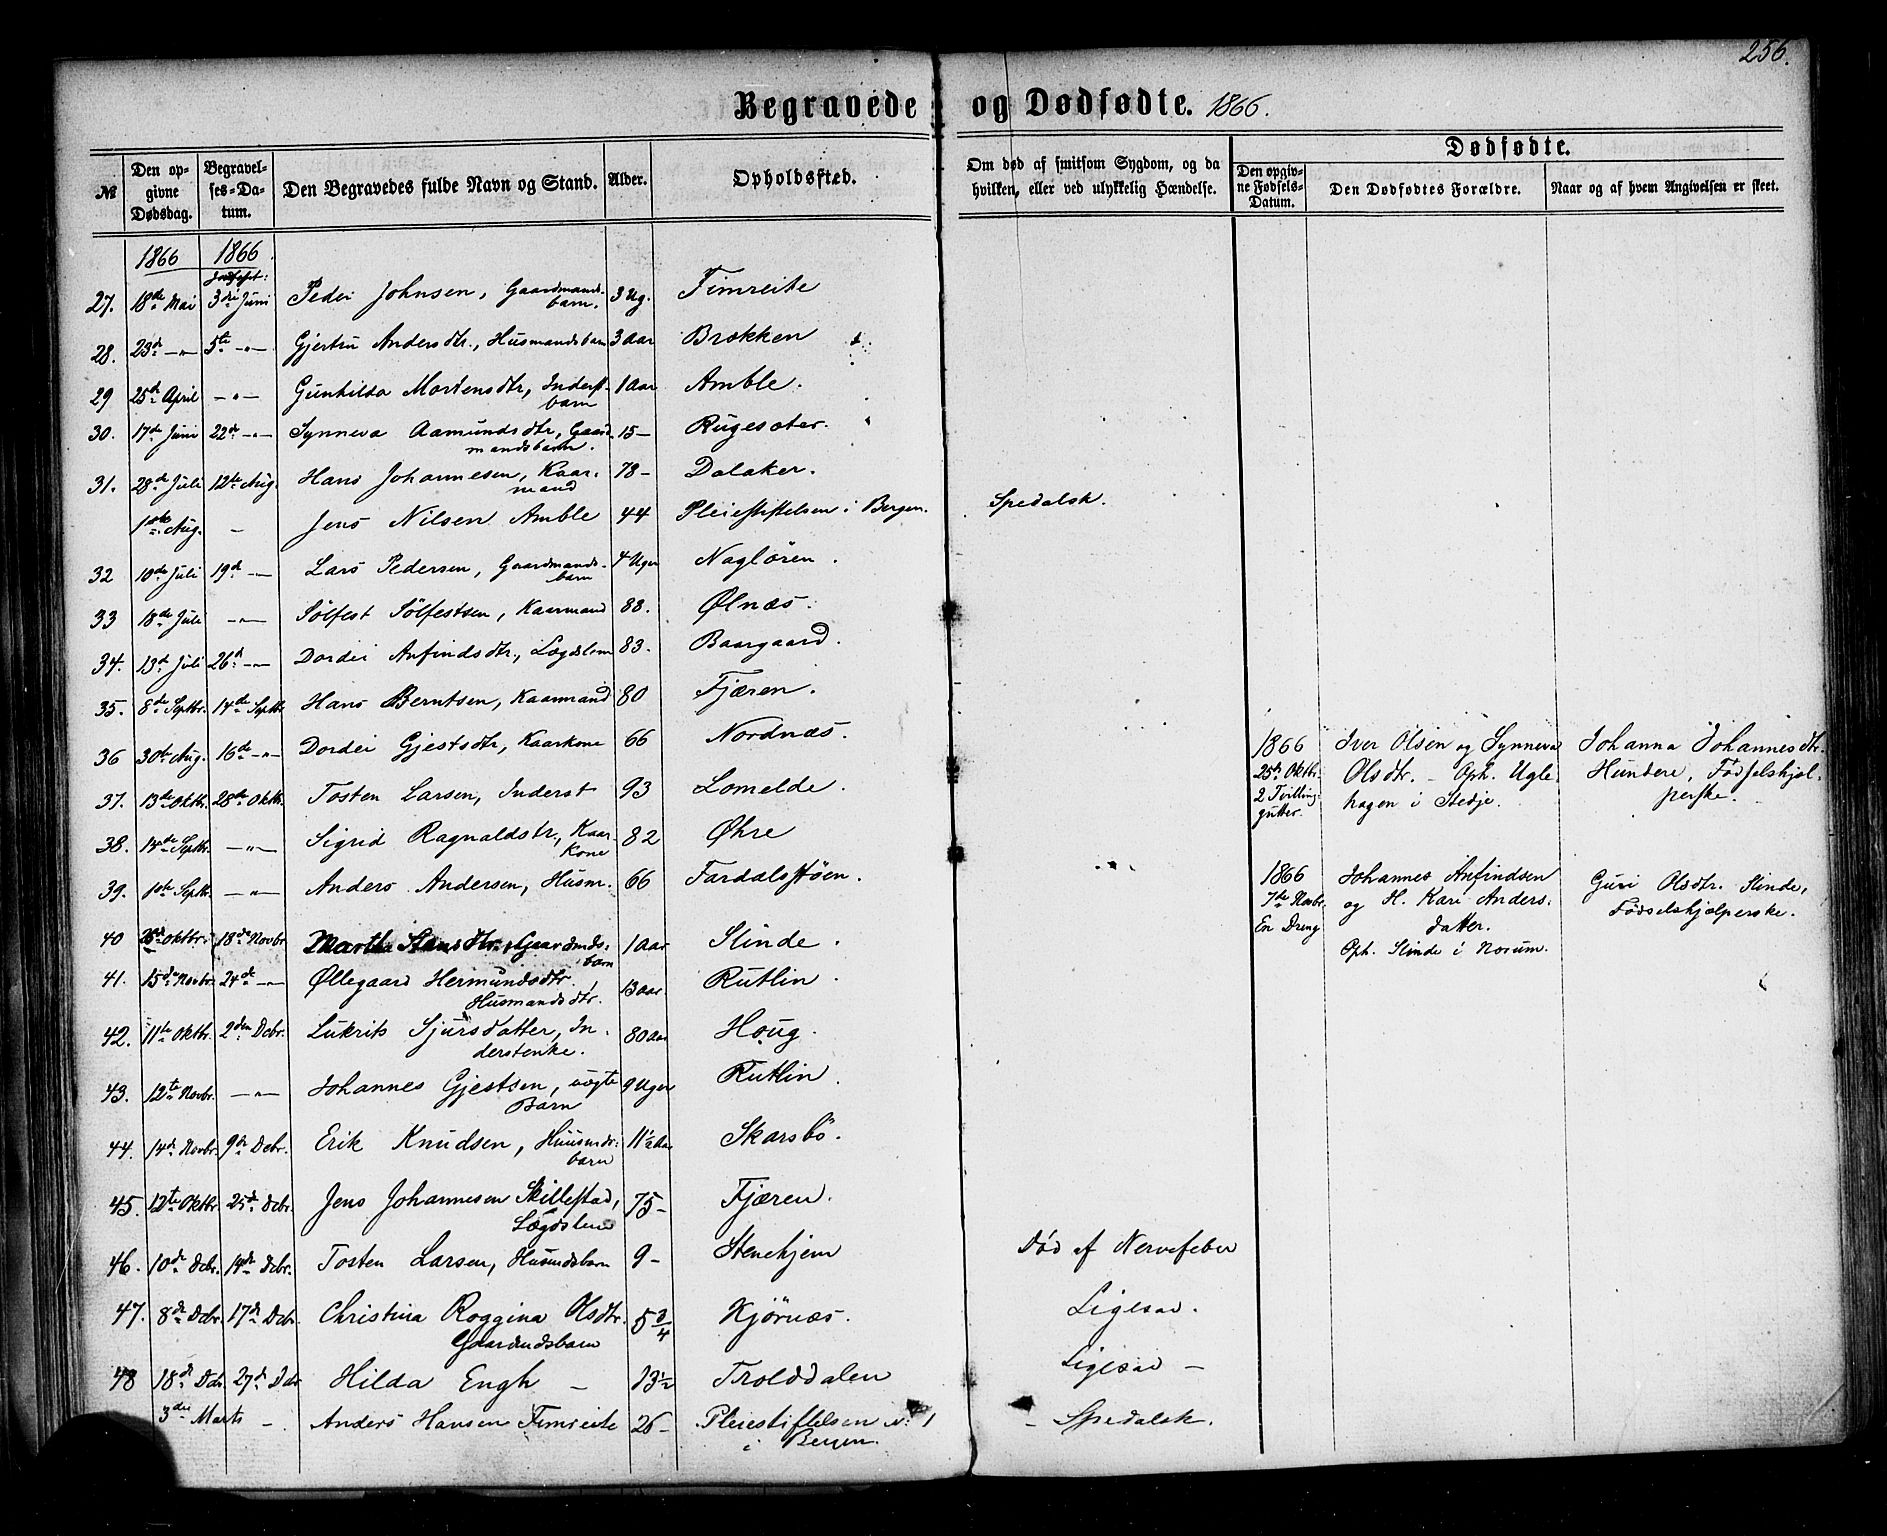 256.
Begravede og Dødfødte. 1866.
№ Den opgivne Dødsdag. Begravelses-Datum. Den Begravedes fulde Navn og Stand. Alder. Opholdssted. Om død af smitsom Sygdom, og da hvilken, eller ved ulykkelig Hændelse. Dødfødte.
Den opgivne Fødsels-Datum. Den Dødfødtes Forældre. Naar og af hvem Angivelsen er skeet.
1866 1866
27. 18de Mai 3die Juni Peder Johnsen, Gaardmands- 3 Ug. Fimreite
barn.
28. 23d —"— 5te —"— Gjertru Andersdtr., Husmandsbarn 3 Aar Brækken
29 25de April —"— Gunhilda Mortensdtr, Inderst- 1 Aar Amble.
barn
30. 17de Juni 22de —"— Synneva Aamundsdtr, Gaard- 15— Rugesæter.
mandsbarn.
31. 28de Juli 12te Aug. Hans Johannesen, Kaar- 78— Dalaker.
mand
1ste Aug. — Jens Nilsen Amble 44 Pleiestiftelsen i Bergen. Spedalsk.
32 10de Juli 19de —"— Lars Pedersen, Gaardmands- 4 Uger Nagløren.
barn
33 18de Juli —"— Sølfest Sølfestsen, Kaarmand 88. Ølnæs.
34. 13de Juli 26de —"— Dordei Anfindsdtr., Lægdslem 83. Baargaard.
35. 8de Septbr. 14de Septbr Hans Berntsen, Kaarmand 80 Fjæren.
36 30te Aug. 16de —"— Dordei Gjestsdtr, Kaarkone 66 Nordnæs.
37. 13de Oktbr. 28de Oktbr. Tosten Larsen, Inderst 93 Lomelde.
38. 14de Septbr. —"— Sigrid Ragnaldstr., Kaar- 82 Øhre
Kone
39. 10te Septbr. —"— Anders Andersen, Husm. 66 Fardalsstøen.
40 Oktbr. 18de Novbr. Martha dtr. Gaardmds- 1 Aar Slinde.
barn
41. 15de Novbr. 24de —"— Øllegaard Hermundsdtr. 13 Aar. Rutlin.
Husmandsdtr.
42. 11te Oktbr. 2den Dcbr. Lukrits Sjursdatter, In- 80 Aar Houg.
derstenke.
43. 12te Novbr. —"— Johannes Gjestsen, uægte 9 Uger Rutlin.
Barn
44. 14de Novbr. 9de Dcbr. Erik Knudsen, Huusmds: 11½ Aar Skarsbö.
barn
45. 12te Oktbr. 25de Dcbr. Jens Johannesen Skillestad, 75— Fjæren.
Lægdslem
46. 10de Dcbr. 14de Dcbr. Tosten Larsen, Husmdsbarn 9— Stenehjem Död af Nervefeber
47. 8de Dcbr. 17de Dcbr. Christina Roggina Olsdtr. 5¾ Kjörnæs. Ligesaa.
Gaardmdsbarn
48 18de Dcbr 27de Dcbr Hilda Engh — 13½ Trolddalen Ligesaa —
3die Marts — Anders Hansen Fimreite 26— Pleiestiftelsen №: 1 — Spedalsk.
i Bergen.
1866 Iver Olsen og Synneva Johanna Johannesdtr.
25de Oktbr. Olsdtr. — Oph. Ugle- Hundere, Fødselshjæl-
2 Tvilling- hagen i Stedje. perske.
gutter.
1866 Johannes Anfindsen Guri Olsdtr. Slinde,
7de Novbr. og H. Kari Anders- Fødselshjælperske.
En Dreng datter.
Oph. Slinde i Norum.